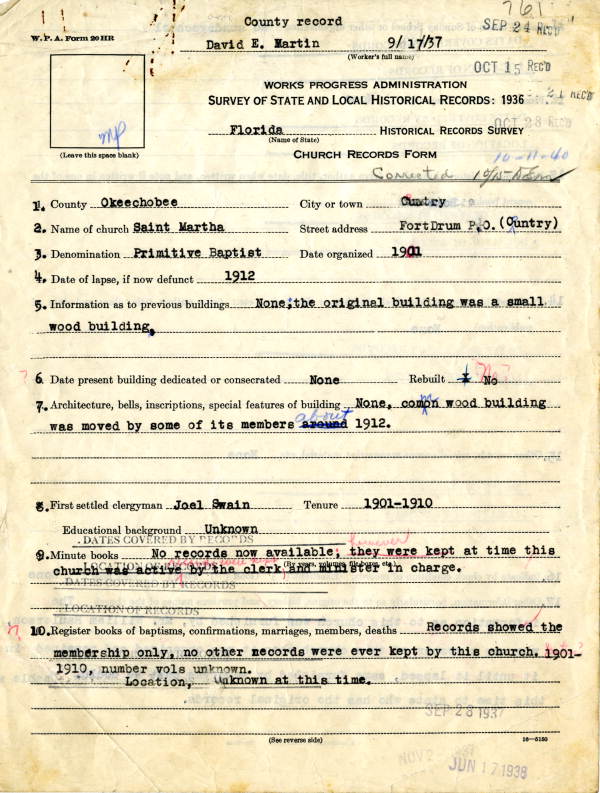 761
County record
SEP 24 REC'D
W. P. A. Form 20 HR
David E. Martin 9/17/37
(Worker's full name)
OCT 15 REC'D
WORKS PROGRESS ADMINISTRATION
SURVEY OF STATE AND LOCAL HISTORICAL RECORDS: 1936
21 REC'D
OCT 28 REC'D
Florida HISTORICAL RECORDS SURVEY
(Name of State)
(Leave this space blank)
CHURCH RECORDS FORM
10-11-40
Corrected 10/15 DEM
1. County Okeechobee City or town Cuntry
2. Name of church Saint Martha Street address FortDrum P.O. (Cuntry)
3. Denomination Primitive Baptist Date organized 1901
4. Date of lapse, if now defunct 1912
5. Information as to previous buildings None; the original building was a small
wood building.
6. Date present building dedicated or consecrated None Rebuilt No No?
7. Architecture, bells, inscriptions, special features of building None, comon wood building
about
was moved by some of its members around 1912.
8. First settled clergyman Joel Swain Tenure 1901-1910
Educational background Unknown
DATES COVERED BY RECORDS
however
9. Minute books No records now available; they were kept at time this
LOCATION OF (By years, volumes, file boxes, etc.)
church was active by the clerk and minister in charge.
DATES COVERED BY RECORDS
LOCATION OF RECORDS
10. Register books of baptisms, confirmations, marriages, members, deaths Records showed the
membership only, no other records were ever kept by this church. 1901-
1910, number vols unknown.
Location, Unknown at this time.
SEP 28 1937
(See reverse side) 16—5150
NOV 2
JUN 17 1938